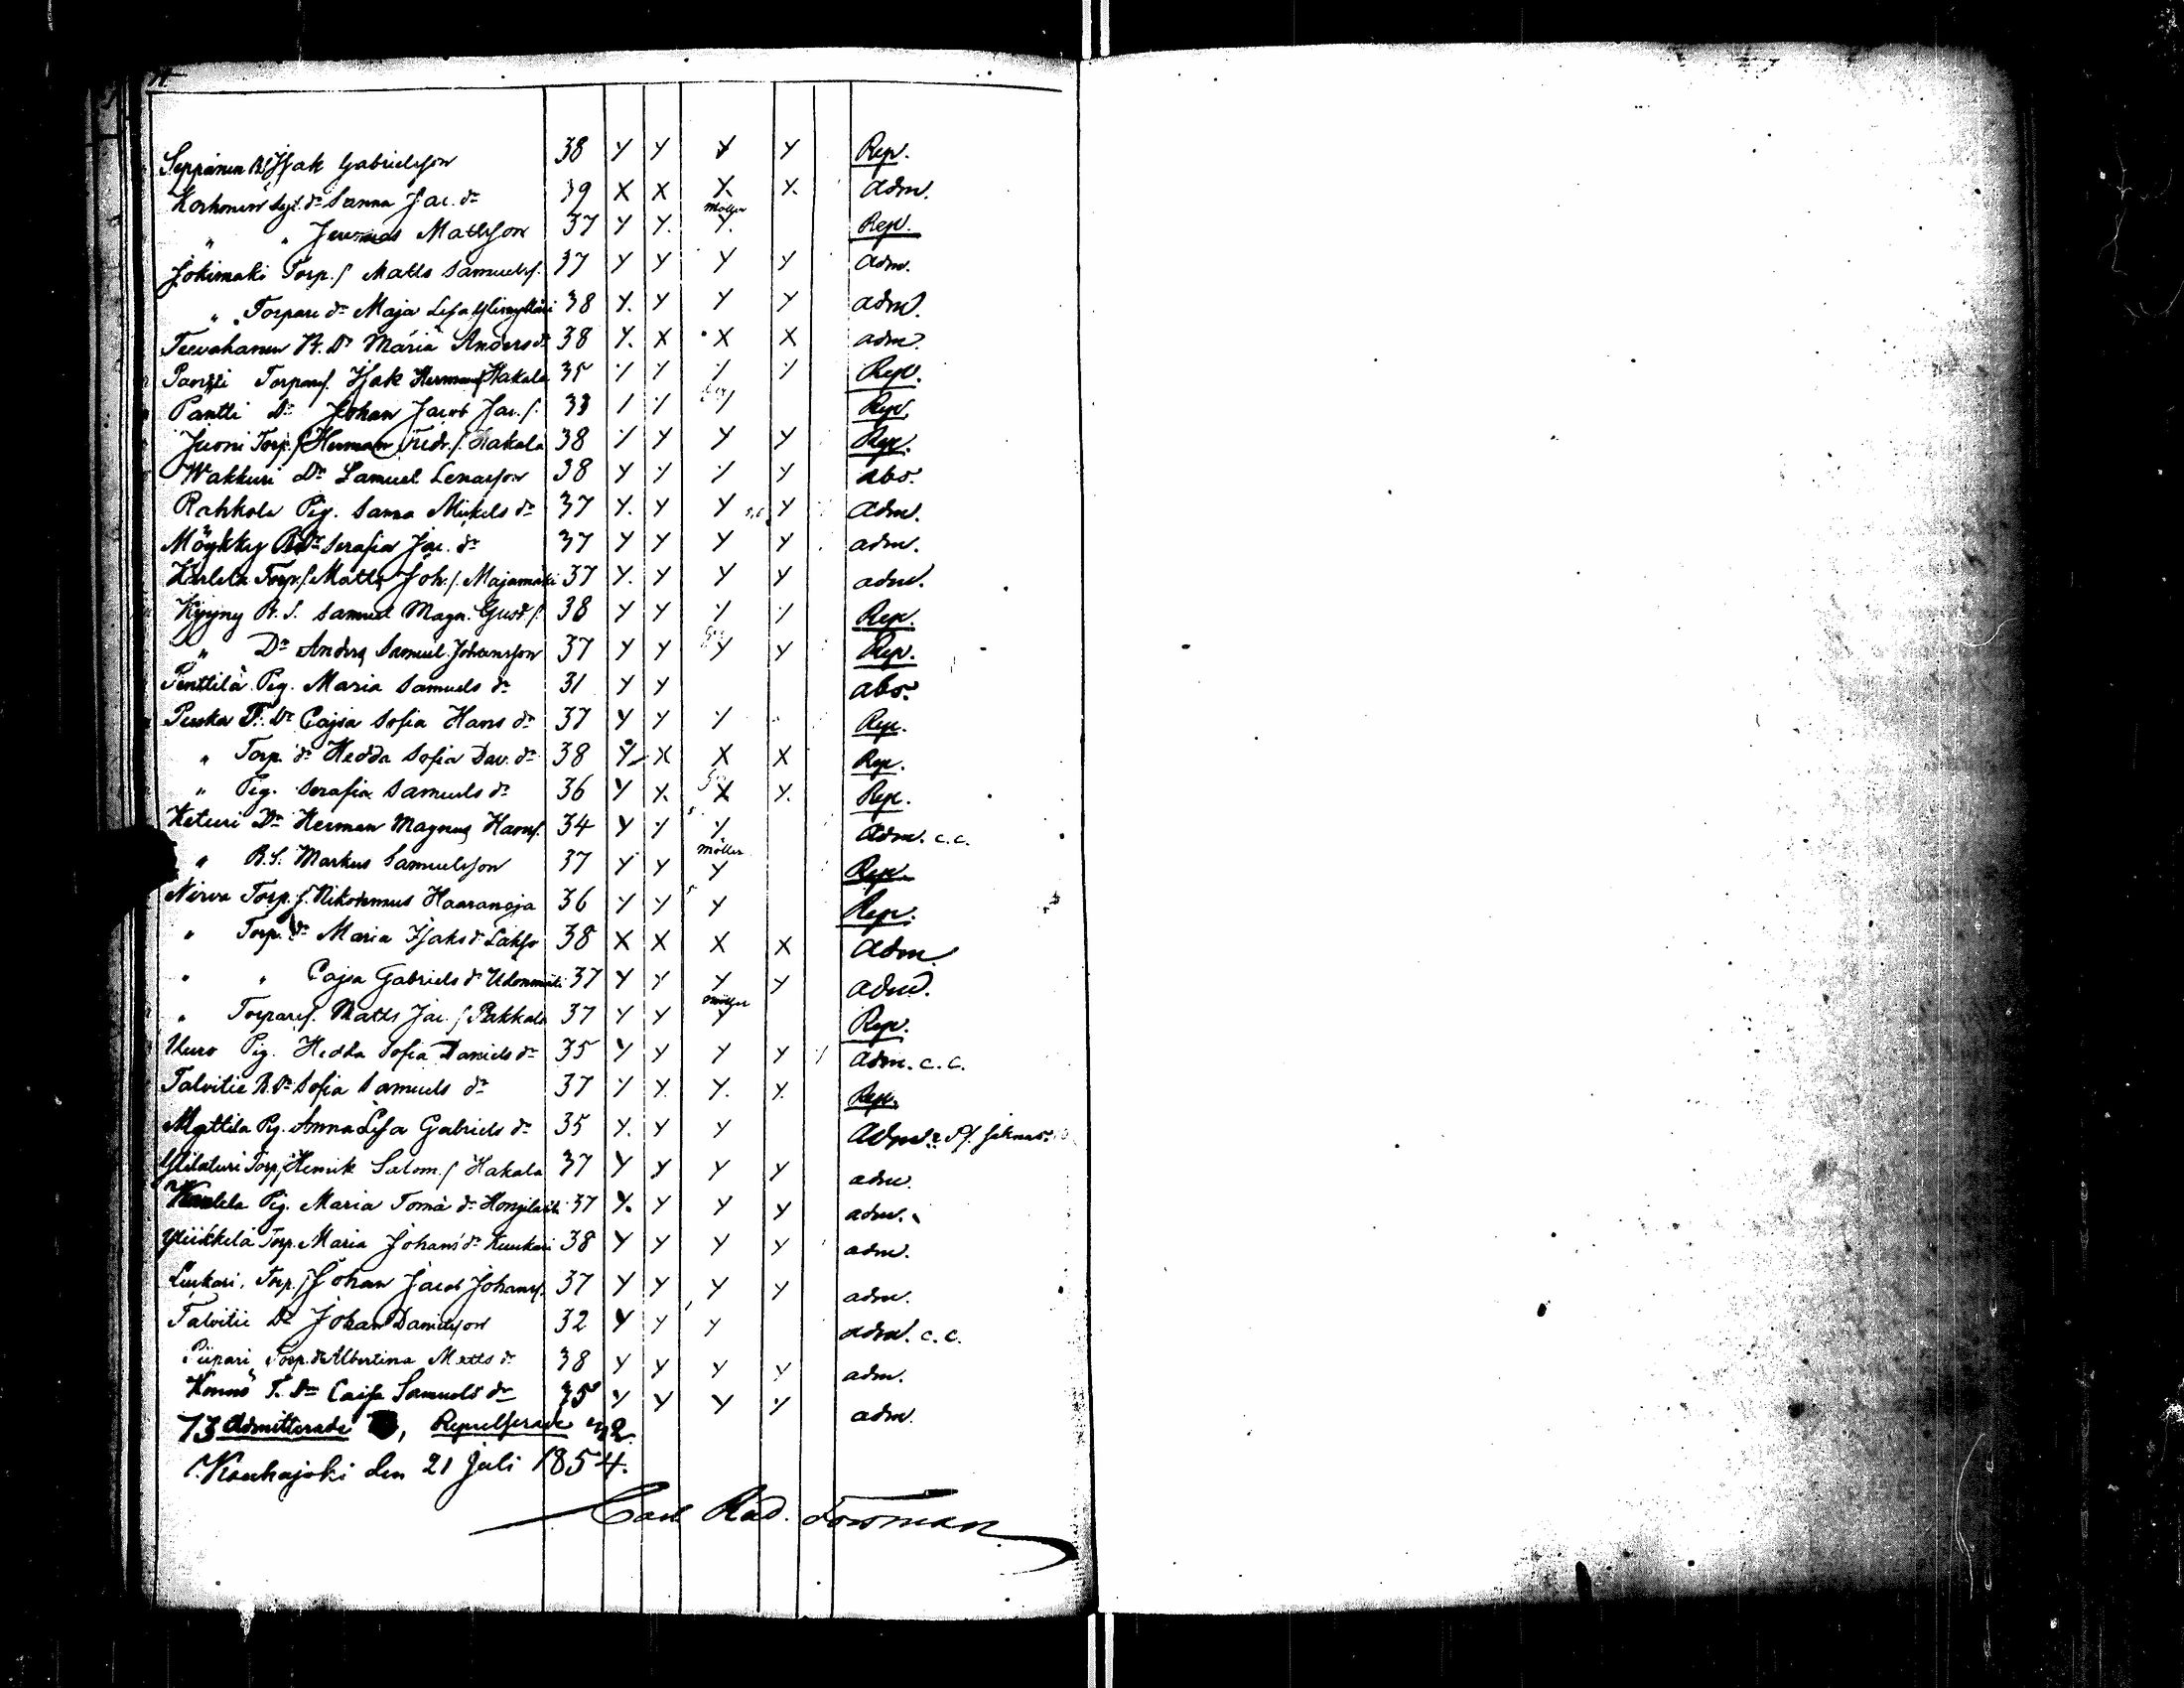 Seppänen B.S. Isak Gabrielsson 38 Y Y Y Y Rep.
Korhonen Sejt. dr Sanna Jac. dr 39 X X X X. adm.
" " Jeremias Mattsson 37 Y Y. Möller Y. Rep.
Jokimäki Torp. s. Matts Samuelss. 37 Y Y Y Y adm.
" Torpare dr Maja Lisa 38 Y. Y Y Y adm.
Tervahanen B. Dr Maria Anders dr 38 Y. X X X adm.
Pantti Torpares. Isak Hermans. Hakala 35 Rep.
Pantti Dr Johan Jacob Jac. s. 33 Rep.
Juoni Torp. s. Herman Fredr. s. Hakala 38 Y Y Y Y Rep.
Wakkuri Dr Samuel Lenasson 38 Y Y Y Y abs.
Rahkola Pig. Sanna Mickels dr 37 Y. Y Y Y adm.
Möykky B. Dr Serafia Jac. dr 37 Y Y Y Y adm.
Karlela Torp. s. Matts Joh. s. Majamäki 37 Y. Y Y Y adm.
Kyyny B. S. Samuel Magn. Gust. s. 38 Y Y Y Y Rep.
" Dr Anders Samuel Johansson 37 Y Y Y Y Rep.
Penttilä Pig. Maria Samuels dr 31 Y Y abs.
Peska T. Dr Cajsa Sofia Hans dr 37 Y Y Y Rep.
" Torp. dr Hedda Sofia Dav. dr 38 Y X X X Rep.
" Pig. Serafia Samuels dr 36 Y X. X Y. Rep.
Keturi Dr Herman Magnus Hanss. 34 Y Y Y Adm. c.c.
" B.S. Markus Samuelsson 37 Y Y Möller Y Rep.
Nirva Torp. s. Nikodemus Haaranoja 36 Y Y Y Rep.
" Torp. dr Maria Isaks dr Lakso 38 X X X X Adm.
" " Cajsa Gabriels dr 37 Y Y Y Y adm.
" Torpares. Matts Jac. s. Pakkala 37 Y Y Möller Y Rep.
Uuro Pig. Hedda Sofia Daniels dr 35 Y Y Y Y Y Adm. c.c.
Talvitie B. Dr Sofia Samuels dr 37 Y Y. Y. Y. Rep.
Myttilä Pig. Anna Lisa Gabriels dr 35 Y. Y Y Adm.
Torp. s. Henrik Salom. s. Hakala 37 Y Y Y Y adm.
Pig. Maria Toma dr 37 Y. Y Y Y adm.
Yliikkelä Torp. Maria Johans dr 38 Y Y Y Y adm.
Luukari, Torp. s. Johan Jacob Johans s. 37 Y Y Y Y adm.
Talvitie Dr Johan Danielsson 32 Y Y Y adm. c.c.
Piipari Torp. dr Albertina Matts dr 38 Y Y Y Y adm.
T. Dr Caisa Samuels dr 35 Y Y Y Y adm.
73 Admitterade, Repellerade 42
Kauhajoki den 21 Juli 1854.
Carl Rud. Forsman